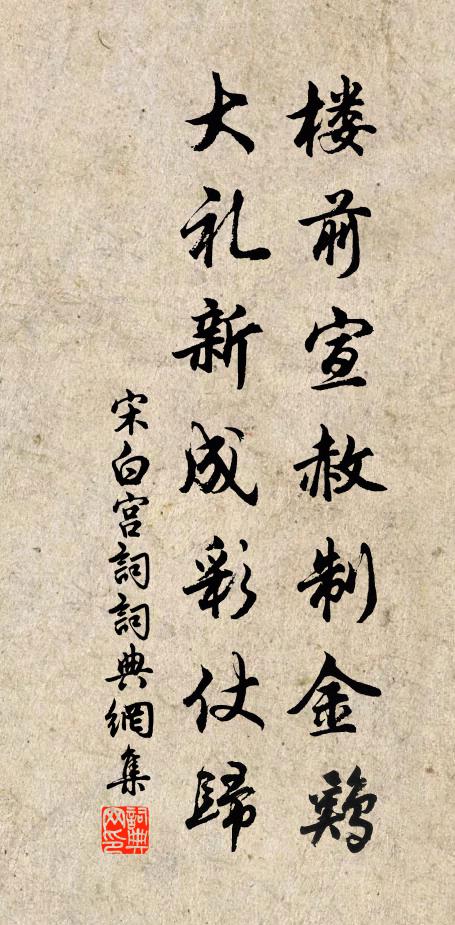 楼前宣赦制金鷄
大礼新成彩仗歸
宋白宫詞詞典網集
詞典网印